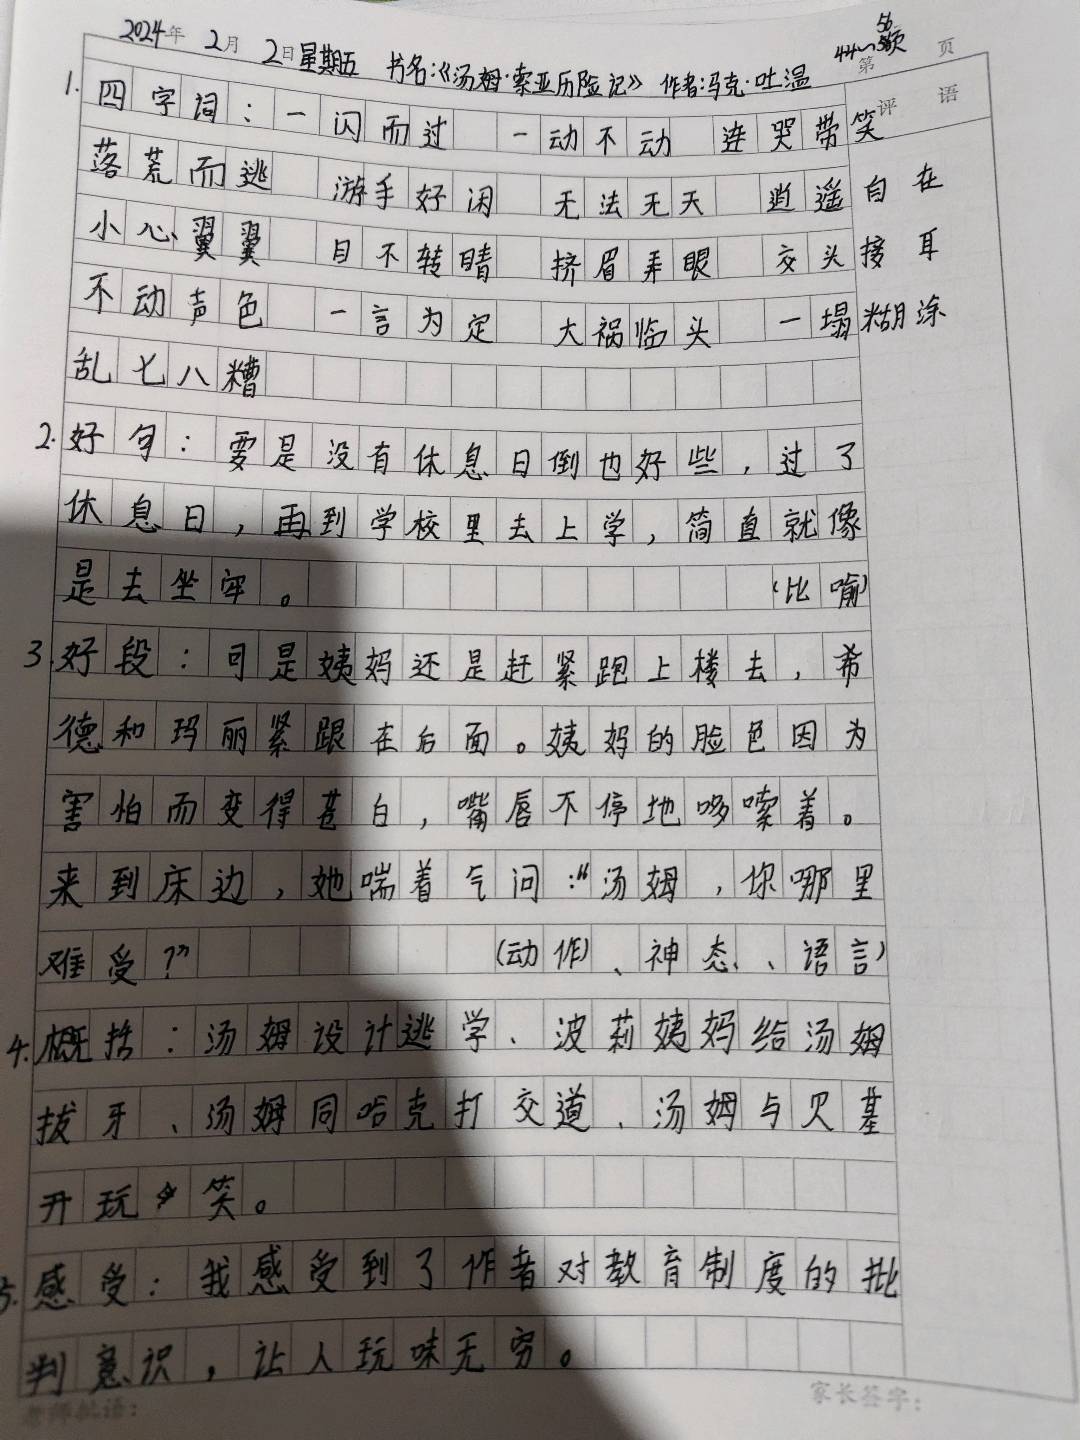 2024年 2月 2日星期五 书名:《汤姆·索亚历险记》 作者:马克·吐温 第 页
评语
1. 四字词：一闪而过 一动不动 连哭带笑
落荒而逃 游手好闲 无法无天 逍遥自在
小心翼翼 目不转睛 挤眉弄眼 交头接耳
不动声色 一言为定 大祸临头 一塌糊涂
乱七八糟
2. 好句：要是没有休息日倒也好些，过了
休息日，再到学校里去上学，简直就像
是去坐牢。 (比喻)
3. 好段：可是姨妈还是赶紧跑上楼去，希
德和玛丽紧跟在后面。姨妈的脸色因为
害怕而变得苍白，嘴唇不停地哆嗦着。
来到床边，她喘着气问：“汤姆，你哪里
难受？” (动作)、神态、语言)
4. 概括：汤姆设计逃学、波莉姨妈给汤姆
拔牙、汤姆同哈克打交道、汤姆与贝基
开玩笑。
5. 感受：我感受到了作者对教育制度的批
判意识，让人玩味无穷。
老师批语： 家长签字：